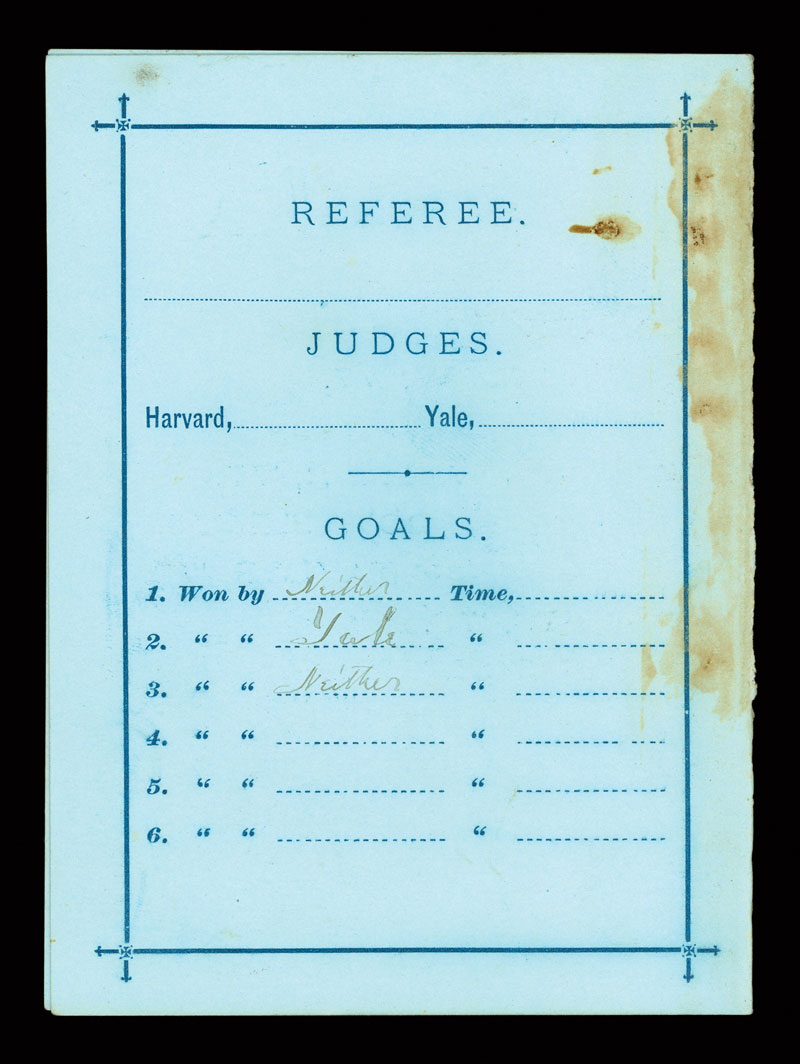 REFEREE.
JUDGES.
Harvard, Yale,
GOALS.
1. Won by Neither Time,
2. “ “ Yale “
3. “ “ Neither “
4. “ “ “
5. “ “ “
6. “ “ “